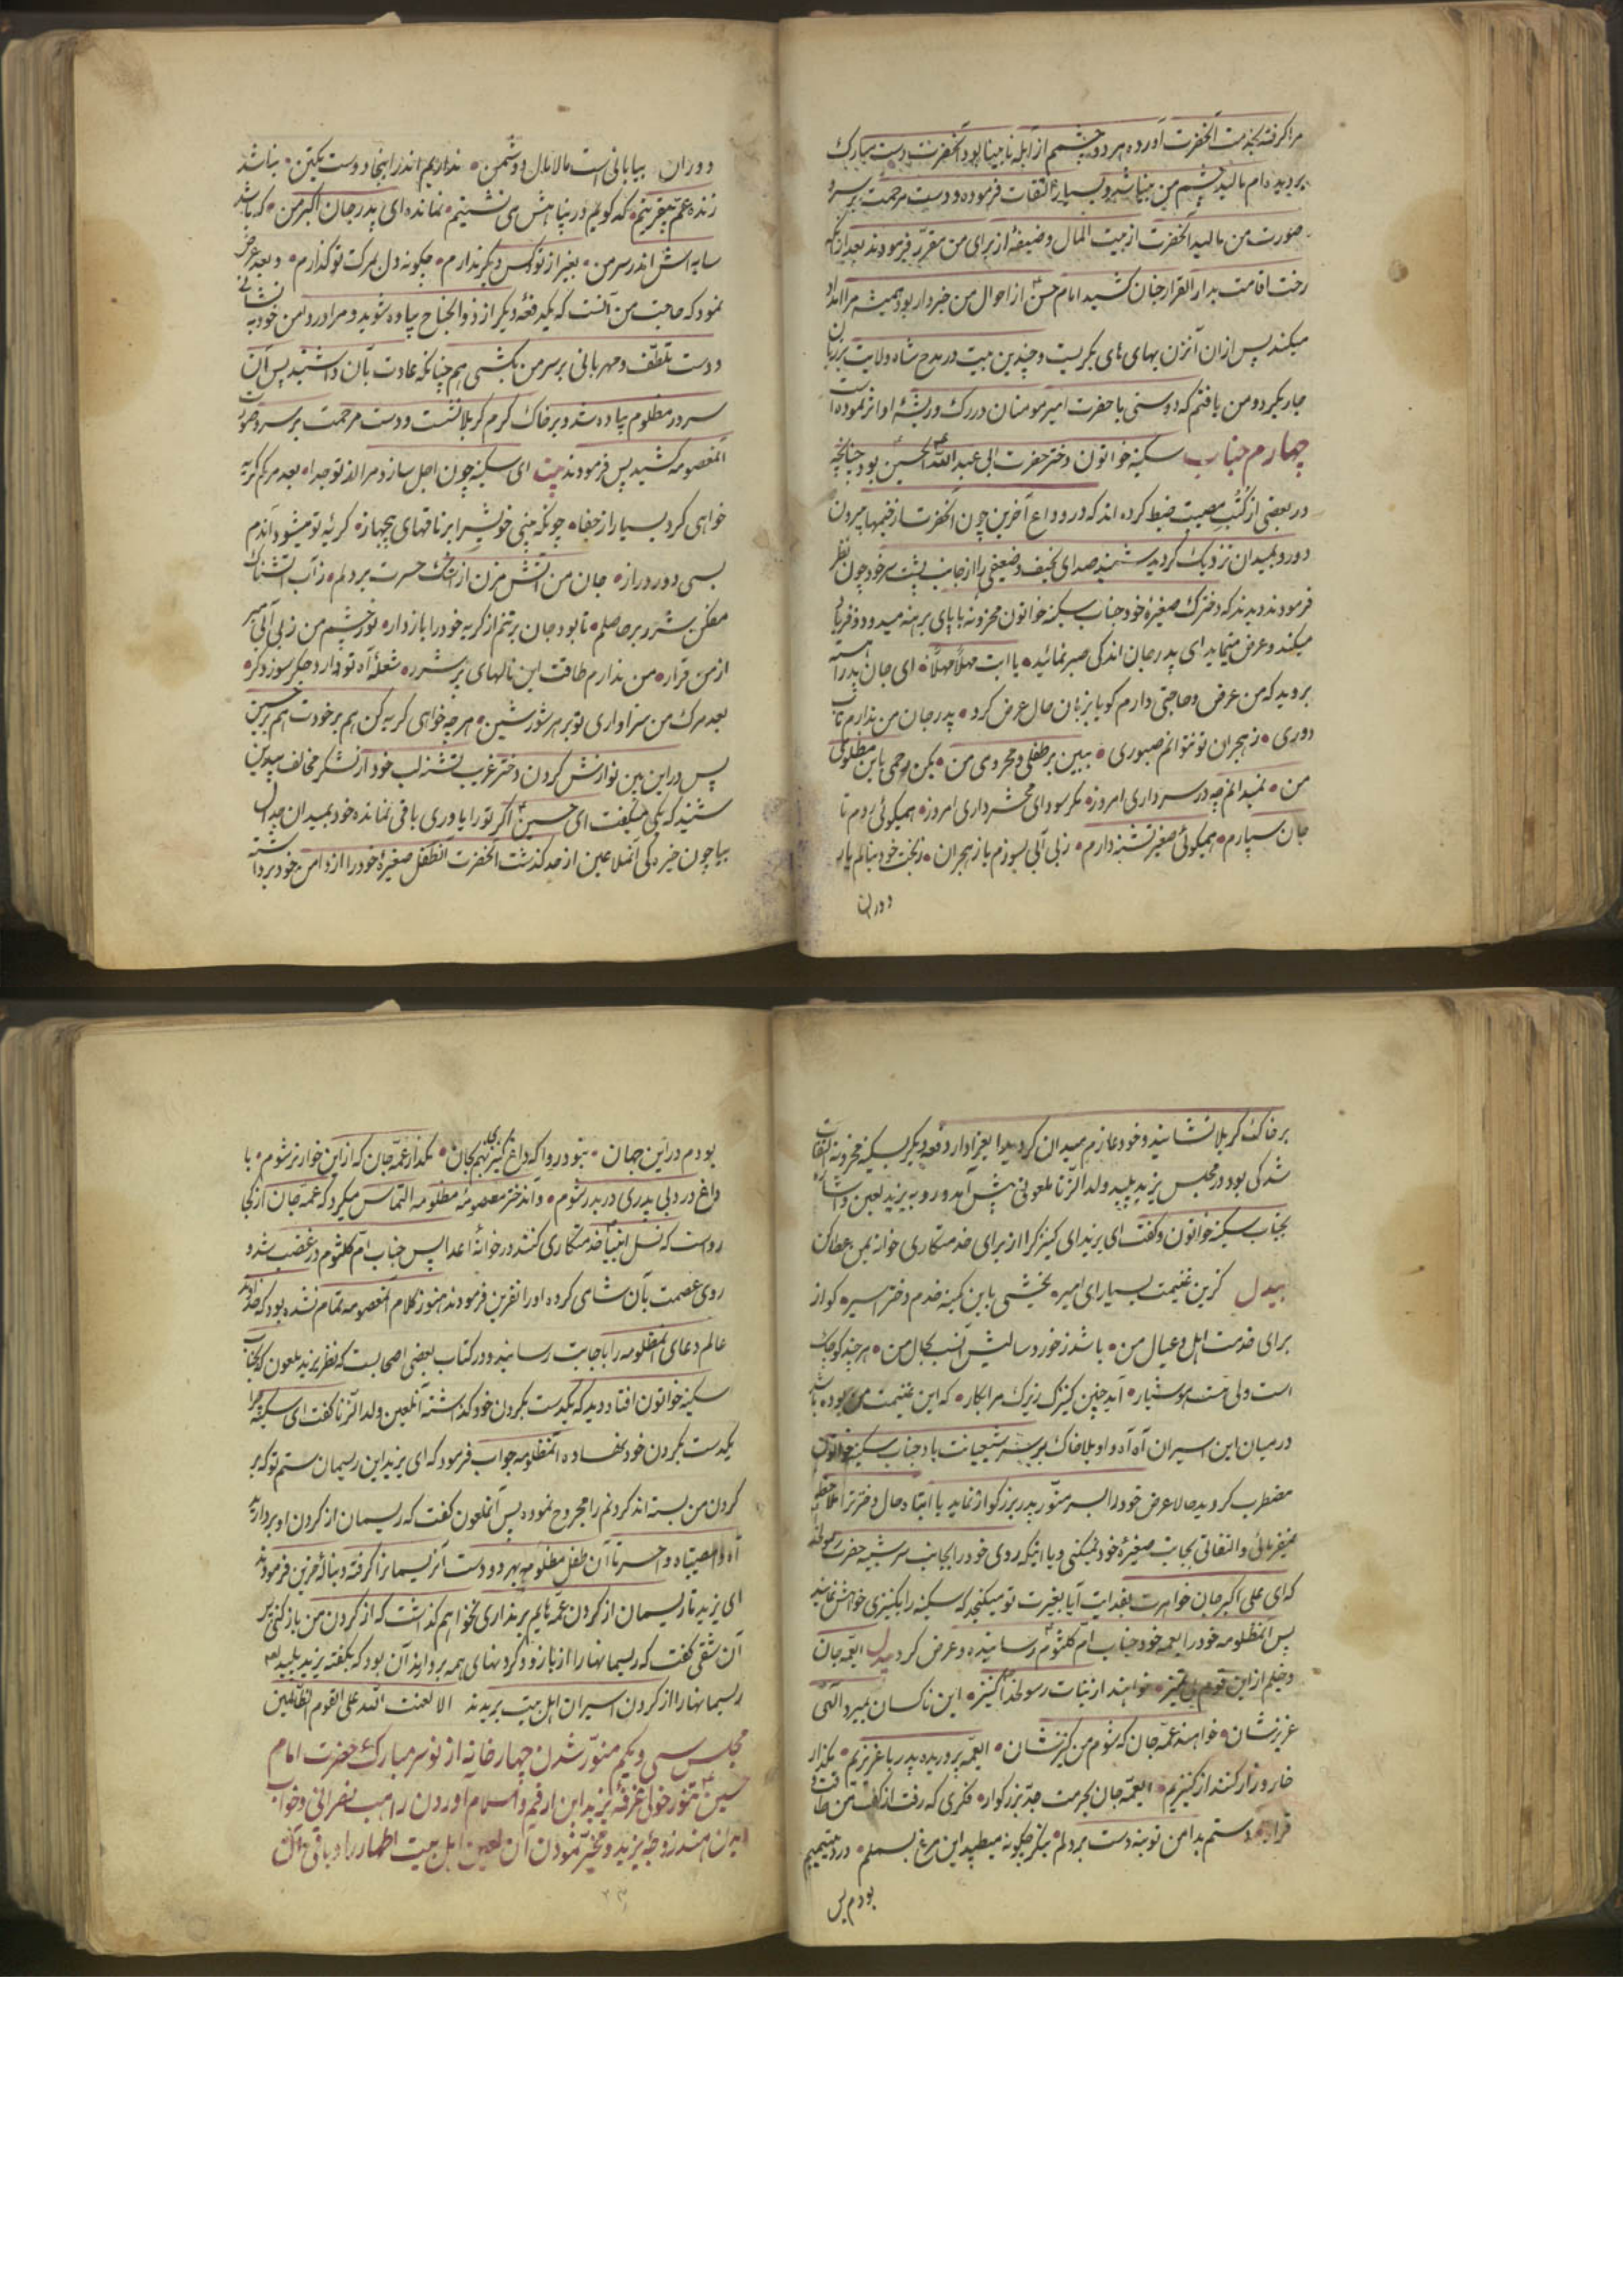 مرا گرفته بخدمت آنحضرت آورده هر دو چشمم از آبله نابینا بود آنحضرت دست مبارک
بر دیده‌ام مالید چشم من بینا شد و بسیار التفات فرموده و دست مرحمت بر سر و
صورت من مالید آنحضرت از بیت المال وضیفهٔ از برای من مقرّر فرمودند بعد از آنکه
رخت اقامت بدار القرار جنان کشید امام حسن از احوال من خبردار بود همیشه مرا امداد
میکند پس از آن آنزن بهای های بگریست و چندین بیت در مدح شاه ولایت بر زبان
جاری کرد و من یافتم که دوستی با حضرت امیر مومنان در رگ و ریشهٔ او اثر نموده است
چهارم جناب سکینه خواتون دختر حضرت ابی عبد الله الحسین بود چنانچه
در بعضی از کُتُب مصیبت ضبط کرده‌اند که در وداع آخرین چون آنحضرت از خیمها بیرون
دور و بمیدان نزدیک گردید شنید صدای نحیف و ضعیفی را از جانب پشت سر خود چون نظر
فرمودند دیدند که دخترک صغیرهٔ خود جناب سکینه خواتون محزونه با پای برهنه میدود و فریاد
میکند و عرض مینماید ای پدر جان اندکی صبر نمائید یا ابت مهلاً مهلاً ای جان پدر آهسته
بروید که من عرض و حاجتی دارم گویا بزبان حال عرض کرد پدر جان من ندارم تاب
دوری ز هجران تو نتوانم صبوری ببین بر طفلی و محرومی من بکن رحمی باین مظلومی
من نمیدانم چه در سر داری امروز مگر سودای محشر داری امروز همیگوئی روم تا
جان سپارم همیگوئی صغیر تشنه دارم ز بی آبی بسوزم یا ز هجران ز بخت خود بنالم یا ز
دوران
دوران بیابانی است مالامال دشمن نداریم اندر اینجا دوست یکتن نباشد
زنده عمّ بیقرینم که گویم در پناهش می نشینم نمانده ای پدر جان اکبر من که باشد
سایه‌اش اندر سر من بغیر از تو کس دیگر ندارم چگونه دل بمرگت تو گذارم و بعد عرض
نمود که حاجت من آنست که یکدفعهٔ دیگر از ذوالجناح پیاده شوید و مرا در دامن خود بنشانی
و دست تلطّف و مهربانی بر سر من بکشی هم چنانکه عادت بآن داشتید پس آن
سرور مظلوم پیاده شد و بر خاک گرم کربلا نشست و دست مرحمت بر سر و صورت
آنمعصومه کشید پس فرمودند بیت ای سکینه چون اجل سازد مرا از تو جدا بعد مرگم گریه
خواهی کرد بسیار از جفا چونکه بینی خویش را بر ناقهای بیجهاز گریهٔ تو میشود آندم
بسی دور و دراز جان من آتش مزن از اشک حسرت بر دلم ز آب آتشناک
مفکن شرر بر حاصلم تا بود جان بر تنم از گریه خود را باز دار نور چشم من ز بی آبی مبر
از من قرار من ندارم طاقت این نالهای پر شرر شعلهٔ آه تو دارد جگر سوز دگر
بعد مرگ من سزاواری تو بر شور و شین هر چه خواهی گریه کن هم بر خودت هم بر حسین
پس در این بین نوازش کردن دختر غریب تشنه لب خود از لشگر مخالف بیدین
شنید که یکی میگفت ای حسین اگر تو را یاوری باقی نمانده خود بمیدان جدال
بیا چون خیره گی آنملاعین از حد گذشت آنحضرت آنطفل صغیرهٔ خود را از دامن خود برداشته
بر خاک کربلا نشانید و خود عازم میدان گردید ایعزادار دفعه دیگر بسکینه محزونه التفات
شد کی بود در مجلس یزید پلید ولد الزّنا ملعونی پیش آمد و رو به یزید لعین و اشاره
بجناب سکینه خواتون و گفت ای یزید ای کنیزک را از برای خدمتکاری خوانه بمن عطا کن
بیدل کزین غنیمت بسیار ای امیر بخشی باین کمینه خدم دختر اسیر کو از
برای خدمت اهل و عیال من باشد ز خورد سالیش انسب بحال من هر چند کوچک
است ولی هست هوشیار آید چنین کنیزک زیرک مرا بکار که این غنیمت بوده باشد
در میان این اسیران آه آه و اویلا خاک بر سر شیعیانت باد جناب سکینه خواتون
مضطرب گردید حالا عرض خود را بسر منوّر پدر بزرگوار نماید یا ابتاه حال دختر ترا ملاحظه
نمیفرمائی و التفاتی بجانب صغیرهٔ خود نمیکنی و یا اینکه روی خود را بجانب سر شبیه حضرت رسولخدا
که ای علی اکبر جان خواهرت بفدایت آیا بغیرت تو میگنجد که سکینه را بکنیزی خواهش نمایند
پس آنمظلومه خود را بعمه خود جناب امّ کلثوم رسانیده و عرض کرد بیدل ایعمّه جان
دخیلم از این قوم بی تمیز خواهند از بنات رسولخدا کنیز این ناکسان بمیرد الهی
عزیزشان خواهند عمّه جان که شوم من کنیزشان ایعمّه پروریده پدر با عزیزیم مگذار
خار و زار کنند از کنیزیم ایعمّه جان بحرمت جدّ بزرگوار فکری که رفت از کف من طاقت و
قرار دستم بدامن تو بنه دست بر دلم بنگر چگونه میطپد این مرغ بسملم درد یتیمیم
بودم بس
بودم در این جهان نبود روا که داغ کنیزیم بجان مگذار عمّه جان که از این خوارتر شوم با
داغ درد بی پدری دربدر شوم و آندختر معصومهٔ مظلومه التماس میکرد که عمّه جان از کجا
رواست که نسل انبیا خدمتکاری کنند در خوانهٔ اعدا پس جناب امّ کلثوم در غضب شد و
روی عصمت بآن شامی کرده او را نفرین فرمودند هنوز کلام آنمعصومه تمام نشده بود که خداوند
عالم دعای آنمظلومه را باجابت رسانید و در کتاب بعضی اصحابست که نظر یزید ملعون که بجناب
سکینه خواتون افتاد دید که یکدست بگردن خود گذاشته آنلعین ولد الزّنا گفت ای سکینه چرا
یکدست بگردن خود نهاده آنمظلومه جواب فرمود که ای یزید این ریسمان ستم تو که بر
گردن من بسته‌اند گردنم را مجروح نموده پس آنملعون گفت که ریسمان از گردن او بردارید
آه وا مصیبتاه و احسرتا آن طفل مظلومه بهر دو دست آن ریسمانرا گرفته و بنالهٔ حزین فرمودند
ای یزید تا ریسمان از گردن عمّه‌هایم بر نداری نخواهم گذاشت که از گردن من باز کنی پس
آن شقی گفت که ریسمانها را از بازو و گردنهای همه بردارید آن بود که بگفته یزید پلید
ریسمانها را از گردن اسیران اهل بیت بریدند الا لعنت الله علی القوم الظّالمین
مجلس سی و یکم منوّر شدن چهار خانه از نور سر مبارک حضرت امام
حسین تنور خولی غرفهٔ یزید ابن ارقم و اسلام آوردن راهب نصرانی و خواب
دیدن هند زوجهٔ یزید و مخیّر نمودن آن لعین اهل بیت اطهار را و باقی آن